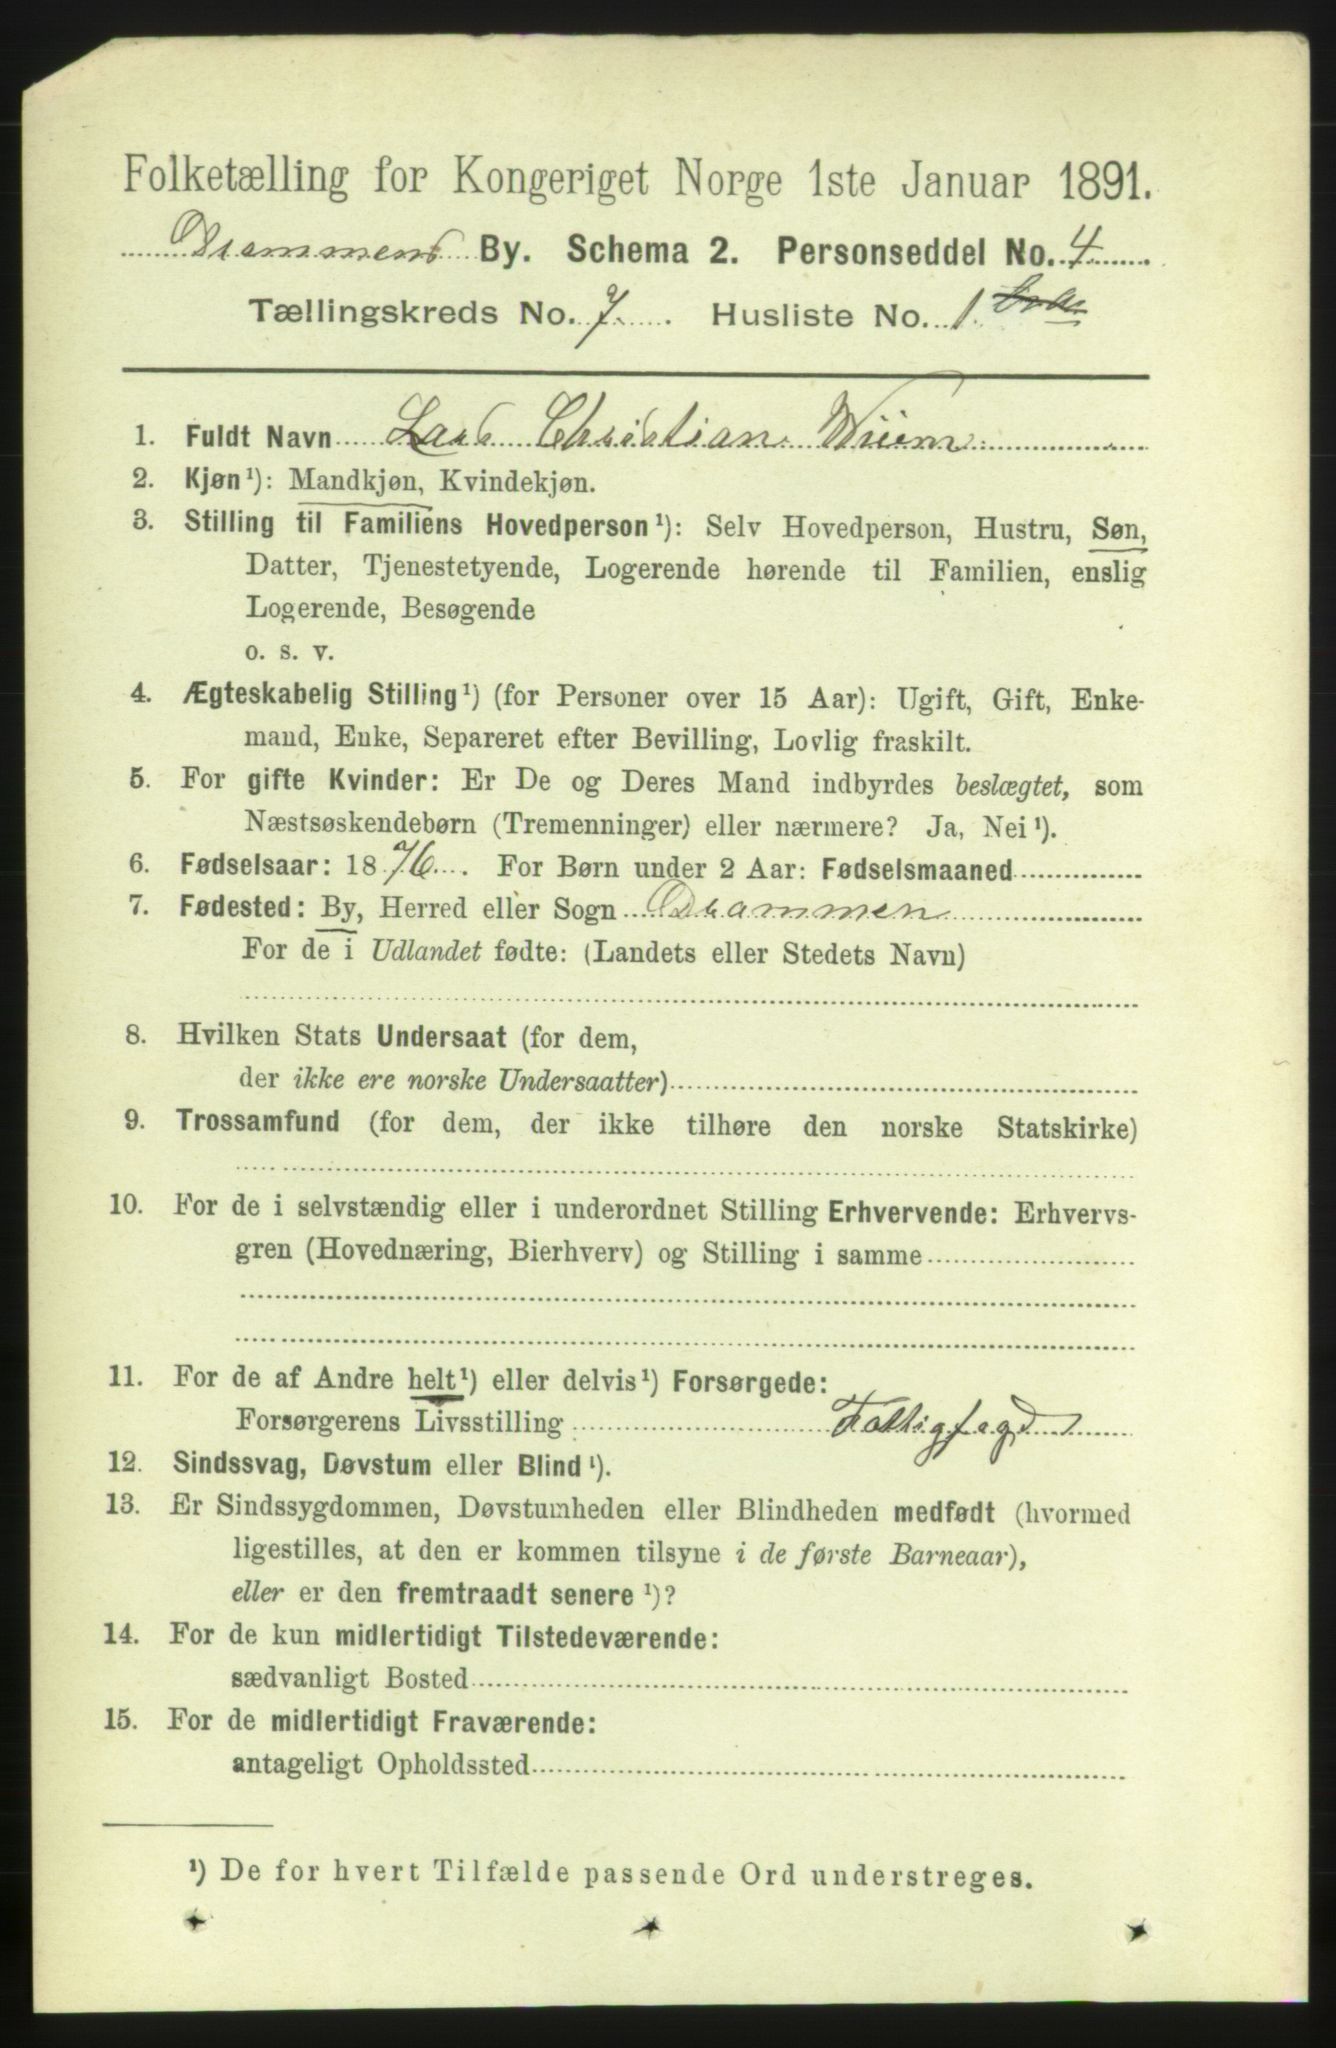 Folketælling for Kongeriget Norge 1ste Januar 1891.
Drammens By. Schema 2. Personseddel No. 4
Tællingskreds No. 7. Husliste No. 1
1. Fuldt Navn Lars Christian Wiium
2. Kjøn¹): Mandkjøn, Kvindekjøn.
3. Stilling til Familiens Hovedperson¹): Selv Hovedperson, Hustru, Søn,
Datter, Tjenestetyende, Logerende hørende til Familien, enslig
Logerende, Besøgende
o. s. v.
4. Ægteskabelig Stilling¹) (for Personer over 15 Aar): Ugift, Gift, Enke-
mand, Enke, Separeret efter Bevilling, Lovlig fraskilt.
5. For gifte Kvinder: Er De og Deres Mand indbyrdes beslægtet, som
Næstsøskendebørn (Tremenninger) eller nærmere? Ja, Nei¹).
6. Fødselsaar: 1876. For Børn under 2 Aar: Fødselsmaaned
7. Fødested: By, Herred eller Sogn Drammen
For de i Udlandet fødte: (Landets eller Stedets Navn)
8. Hvilken Stats Undersaat (for dem,
der ikke ere norske Undersaatter)
9. Trossamfund (for dem, der ikke tilhøre den norske Statskirke)
10. For de i selvstændig eller i underordnet Stilling Erhvervende: Erhvervs-
gren (Hovednæring, Bierhverv) og Stilling i samme
11. For de af Andre helt¹) eller delvis¹) Forsørgede:
Forsørgerens Livsstilling Fattigfogd
12. Sindssvag, Døvstum eller Blind¹).
13. Er Sindssygdommen, Døvstumheden eller Blindheden medfødt (hvormed
ligestilles, at den er kommen tilsyne i de første Barneaar),
eller er den fremtraadt senere¹)?
14. For de kun midlertidigt Tilstedeværende:
sædvanligt Bosted
15. For de midlertidigt Fraværende:
antageligt Opholdssted
¹) De for hvert Tilfælde passende Ord understreges.